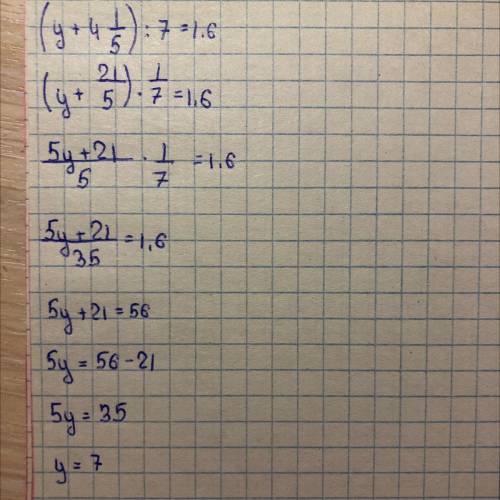 (y + 4 1/5) : 7 = 1.6
(y + 21/5) · 1/7 = 1,6
(5y + 21)/5 · 1/7 = 1,6
(5y + 21)/35 = 1,6
5y + 21 = 56
5y = 56 - 21
5y = 35
y = 7